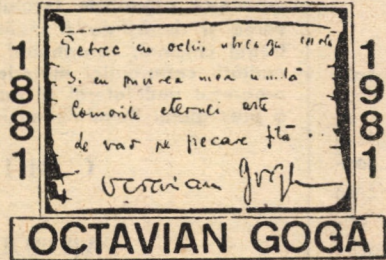 1881
Petrec cu ochii
Și cu privirea mea umilă
Comorile eternei arte
de pe fiecare
Octavian Goga
1981
OCTAVIAN GOGA